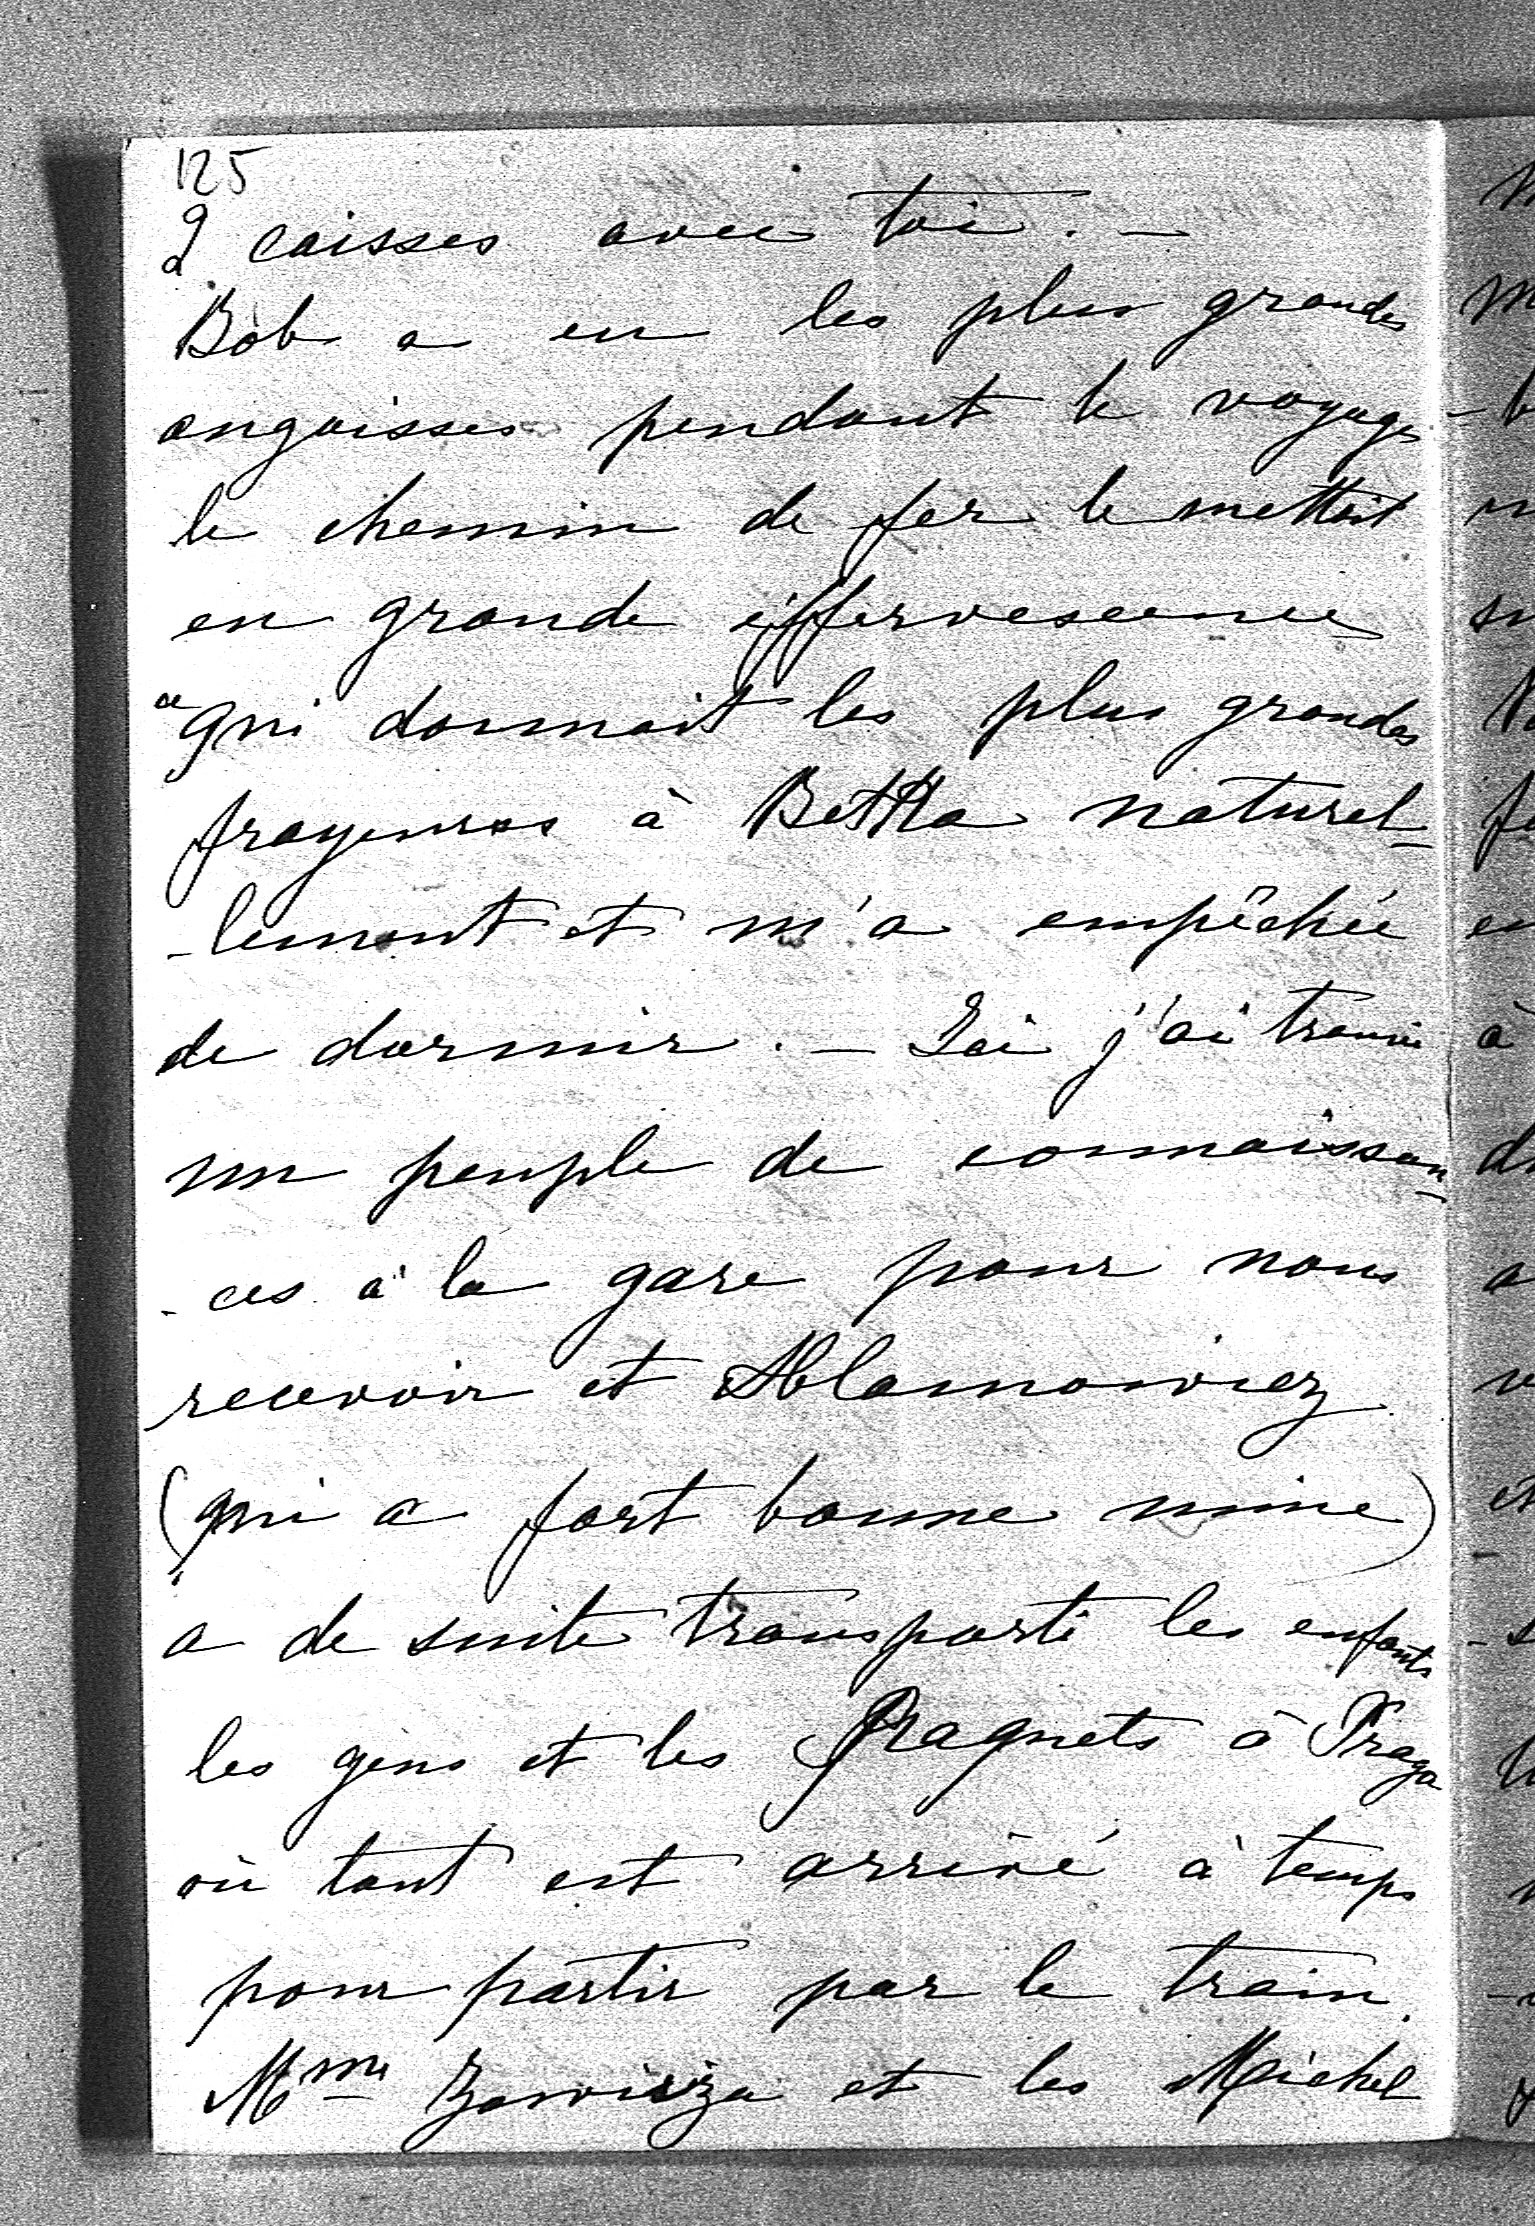 125
2 caisses avec toi. —
Bob a eu les plus grandes
angoisses pendant le voyage
le chemin de fer le mettait
en grande effervescence
ce qui donnait les plus grandes
frayeurs à Betka naturel-
-lement et m'a empêchée
de dormir. — Ici j'ai trouvé
un peuple de connaissan-
-ces à la gare pour nous
recevoir et Ablamowicz
(qui a fort bonne mine)
a de suite transporté les enfants
les gens et les Pragnets à Praga
où tout est arrivé à temps
pour partir par le train.
Mme Zawisza et les Michel